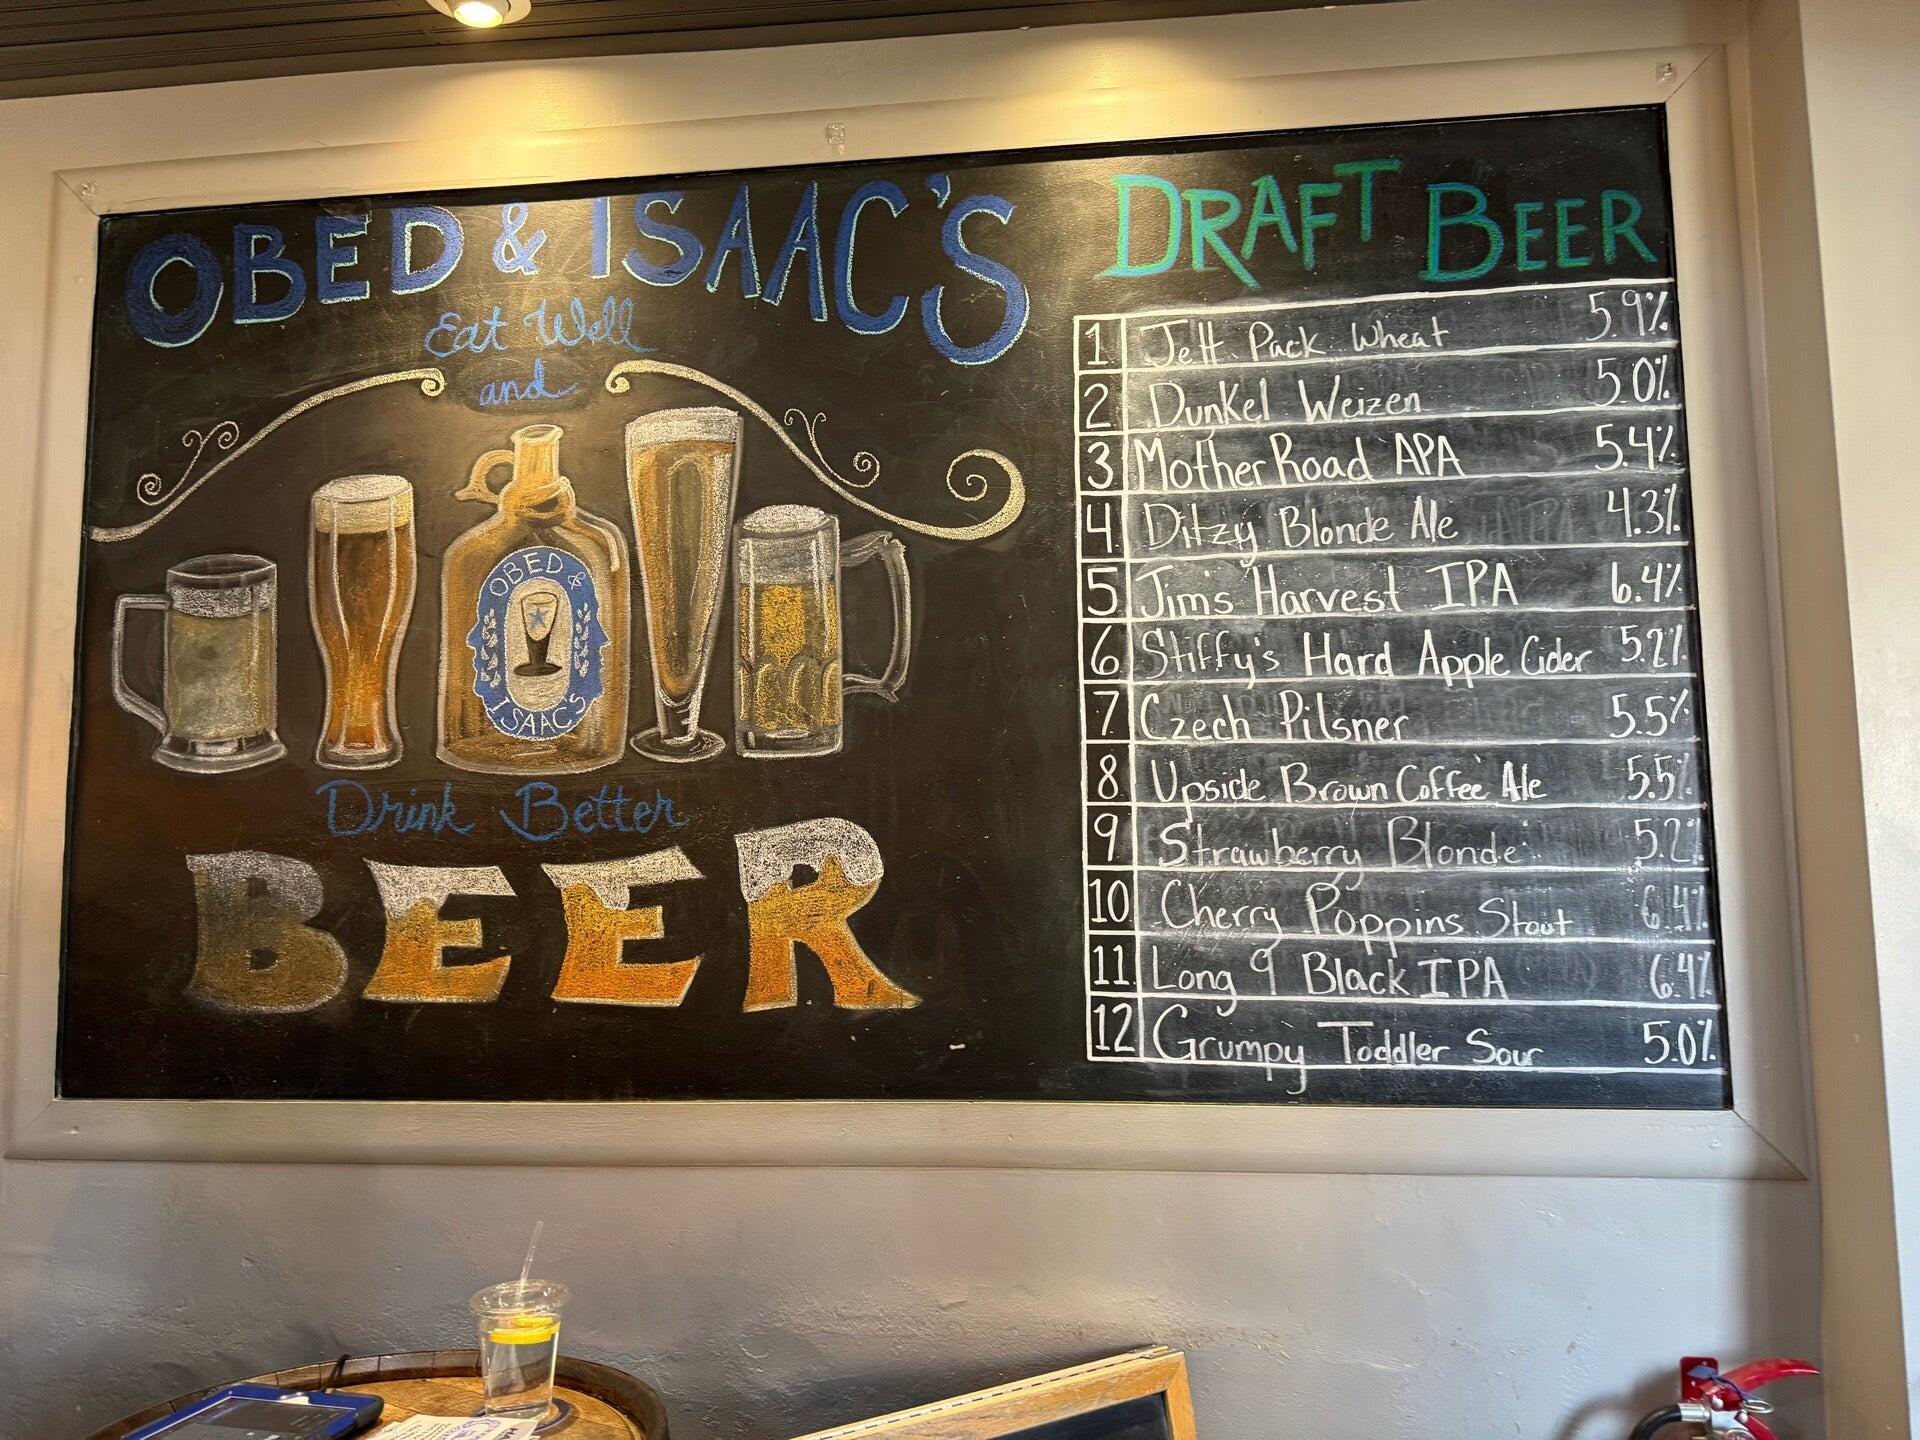 OBED & ISAAC'S
Eat Well
and
OBED &
ISAAC'S
Drink Better
BEER
DRAFT BEER
1 Jett Pack Wheat 5.9%
2 Dunkel Weizen 5.0%
3 Mother Road APA 5.4%
4 Ditzy Blonde Ale 4.3%
5 Jim's Harvest IPA 6.4%
6 Stiffy's Hard Apple Cider 5.2%
7 Czech Pilsner 5.5%
8 Upside Brown Coffee Ale 5.5%
9 Strawberry Blonde 5.2%
10 Cherry Poppins Stout 6.4%
11 Long 9 Black IPA 6.4%
12 Grumpy Toddler Sour 5.0%